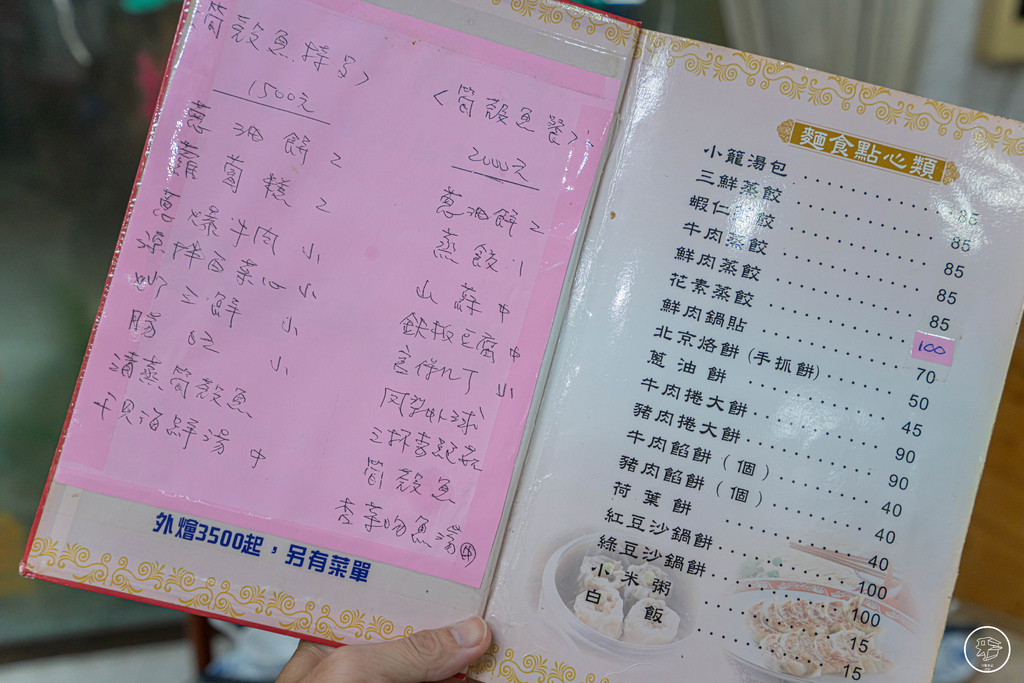 筒殼魚特另>
1500元
蔥油餅 2
蘿蔔糕 2
蔥爆牛肉 小
涼拌白菜心 小
炒三鮮 小
腸旺 小
清蒸筒殼魚
干貝海鮮湯 中
<筒殼魚餐>
2000元
蔥油餅 2
蒸餃 1
山蘇 中
鉄板豆腐 中
宮保几丁 小
三杯杏鮑菇
筒殼魚
杏菜吻魚湯 中
外燴3500起，另有菜單
麵食點心類
小籠湯包 85
三鮮蒸餃 85
蝦仁蒸餃 85
牛肉蒸餃 85
鮮肉蒸餃 85
花素蒸餃 100
鮮肉鍋貼 70
北京烙餅(手抓餅) 50
蔥油餅 45
牛肉捲大餅 90
豬肉捲大餅 90
牛肉餡餅(個) 40
豬肉餡餅(個) 40
荷葉餅 40
紅豆沙鍋餅 100
綠豆沙鍋餅 100
小米粥 15
白飯 15